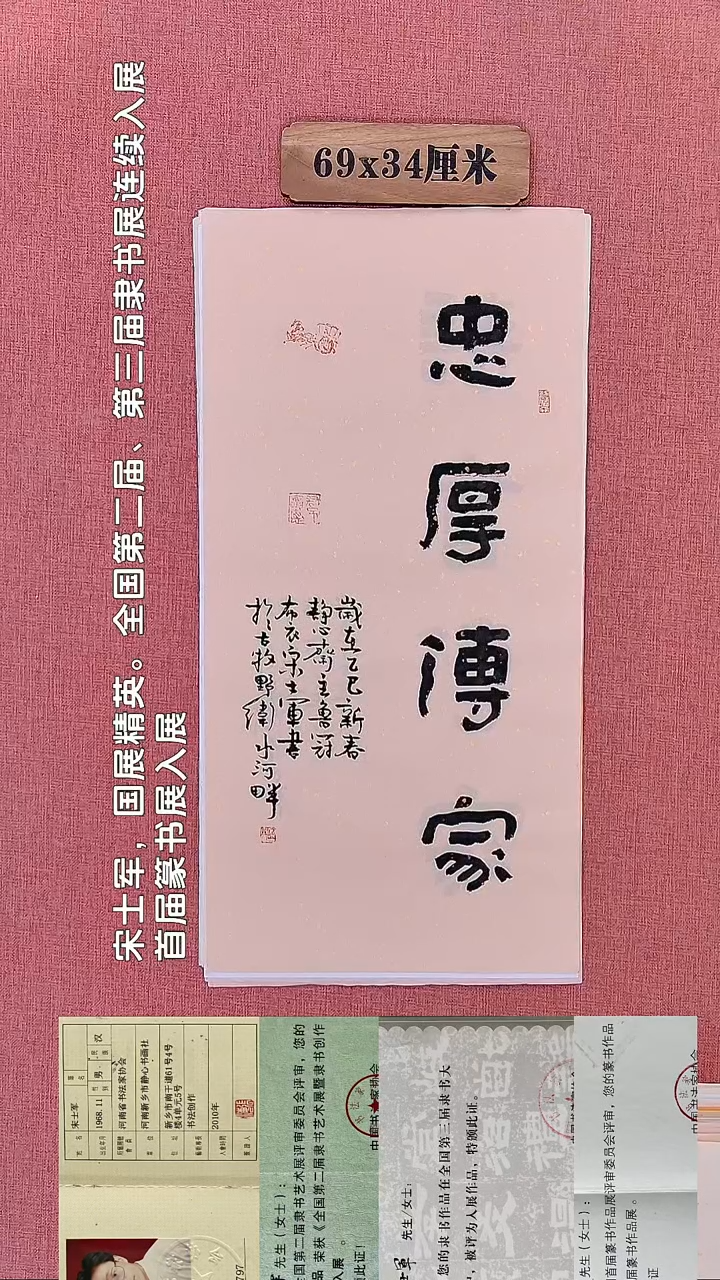 宋士军，国展精英。全国第二届、第三届隶书展连续入展
首届篆书展入展
69x34厘米
忠厚傳家
歲在乙巳新春
靜心齋主魯冠
布衣宋士軍書
於古牧野衛水河畔
姓名 宋士军
出生年月 1968.11 性别 男 民族 汉
河南省书法家协会
单位 河南新乡市静心书画社
住址 新乡市南干道61号4号
楼4单元5号
书法创作
入会时间 2010年
先生（女士）：
全国第二届隶书艺术展评审委员会评审，您的
品 荣获《全国第二届隶书艺术展暨隶书创作
入展 。
此证！
中国书法家协会
先生/女士：
您的隶书作品在全国第三届隶书大
，被评为入展作品，特颁此证。
先生（女士）：
首届篆书作品展评审委员会评审，您的篆书作品
届篆书作品展 。
此证